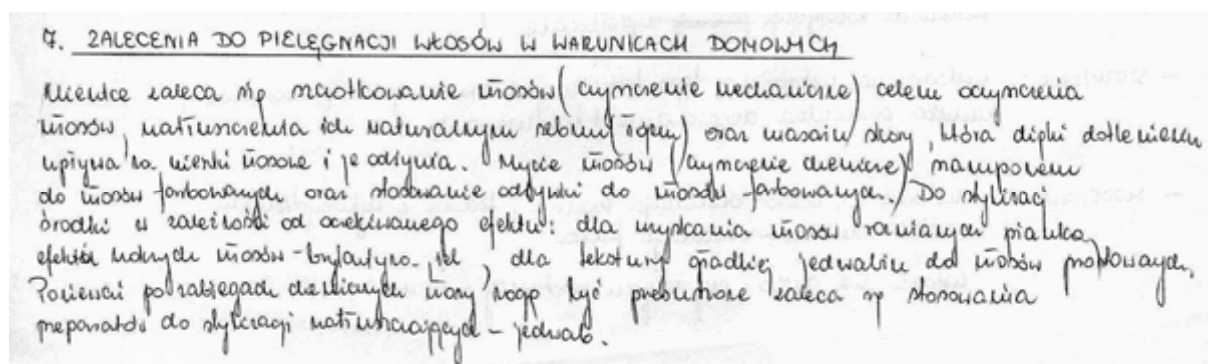 7. ZALECENIA DO PIELĘGNACJI WŁOSÓW W WARUNKACH DOMOWYCH
Klientce zaleca się szczotkowanie włosów (czyszczenie mechaniczne) celem oczyszczenia
włosów, natłuszczenia ich naturalnym sebum (łojem) oraz masażu skóry, która dzięki dotlenieniu
wpływa na cebulki włosowe i je odżywia. Mycie włosów (czyszczenie chemiczne) szamponem
do włosów farbowanych oraz stosowanie odżywki do włosów farbowanych. Do stylizacji
środki w zależności od oczekiwanego efektu: dla uzyskania włosów
efektu mokrych włosów - brylantyna, żel, dla tekstury gładkiej jedwabiu do włosów prostowanych.
Ponieważ po zabiegach chemicznych włosy mogą być przesuszone zaleca się stosowania
preparatów do stylizacji natłuszczających - jedwab.